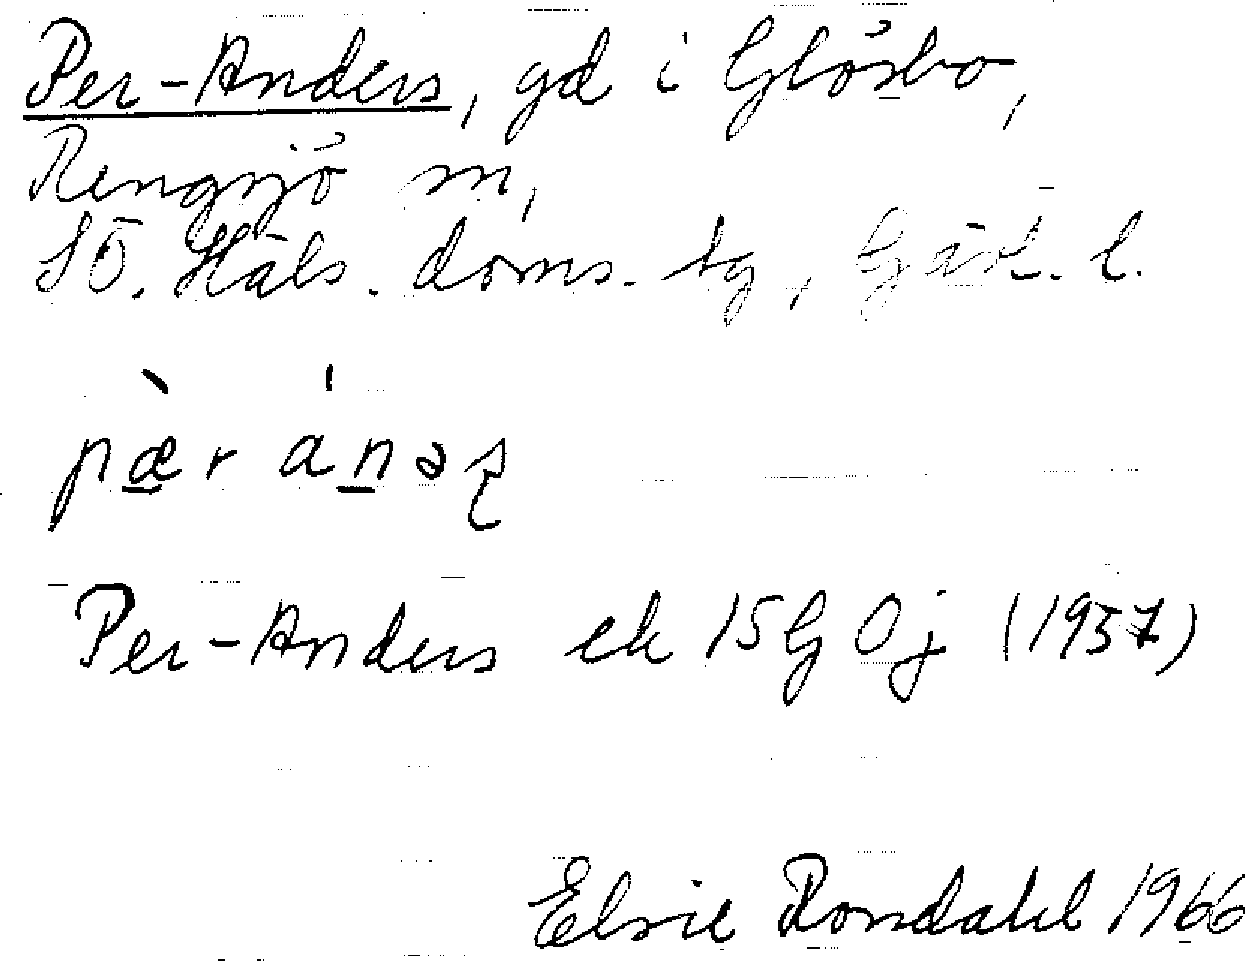 Per-Anders, gd i Glösbo,
Rengsjö sn,
SÖ. Häls. doms. tg, Gävl. l.
pæ̀r ánəʂ
Per-Anders ek 15G 0j (1957)
Elsie Rondahl 1966